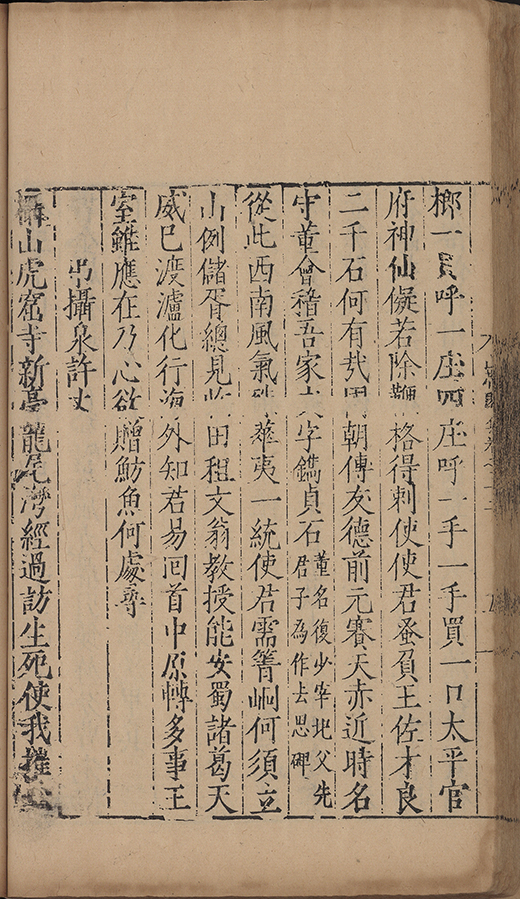 榔一呼一庄西庄呼一手一手買一口太平官
府神仙儗若除鞭格得刺使使君蚤負王佐才良
二千石何有哉朝傳友德前元賽天赤近時名
守董會稽吾家字鐫貞石
董名復少宰父先
君子為作去思碑
從此西南風氣華夷一統使君需箐峒何須立
山例儲胥總見田租文翁教授能安蜀諸葛天
威已渡瀘化行海外知君易回首中原轉多事王
室雖應在乃心欲贈魴魚何處尋
弔攝泉許丈
山虎窟寺新亭龍尾灣經過訪生死使我摧